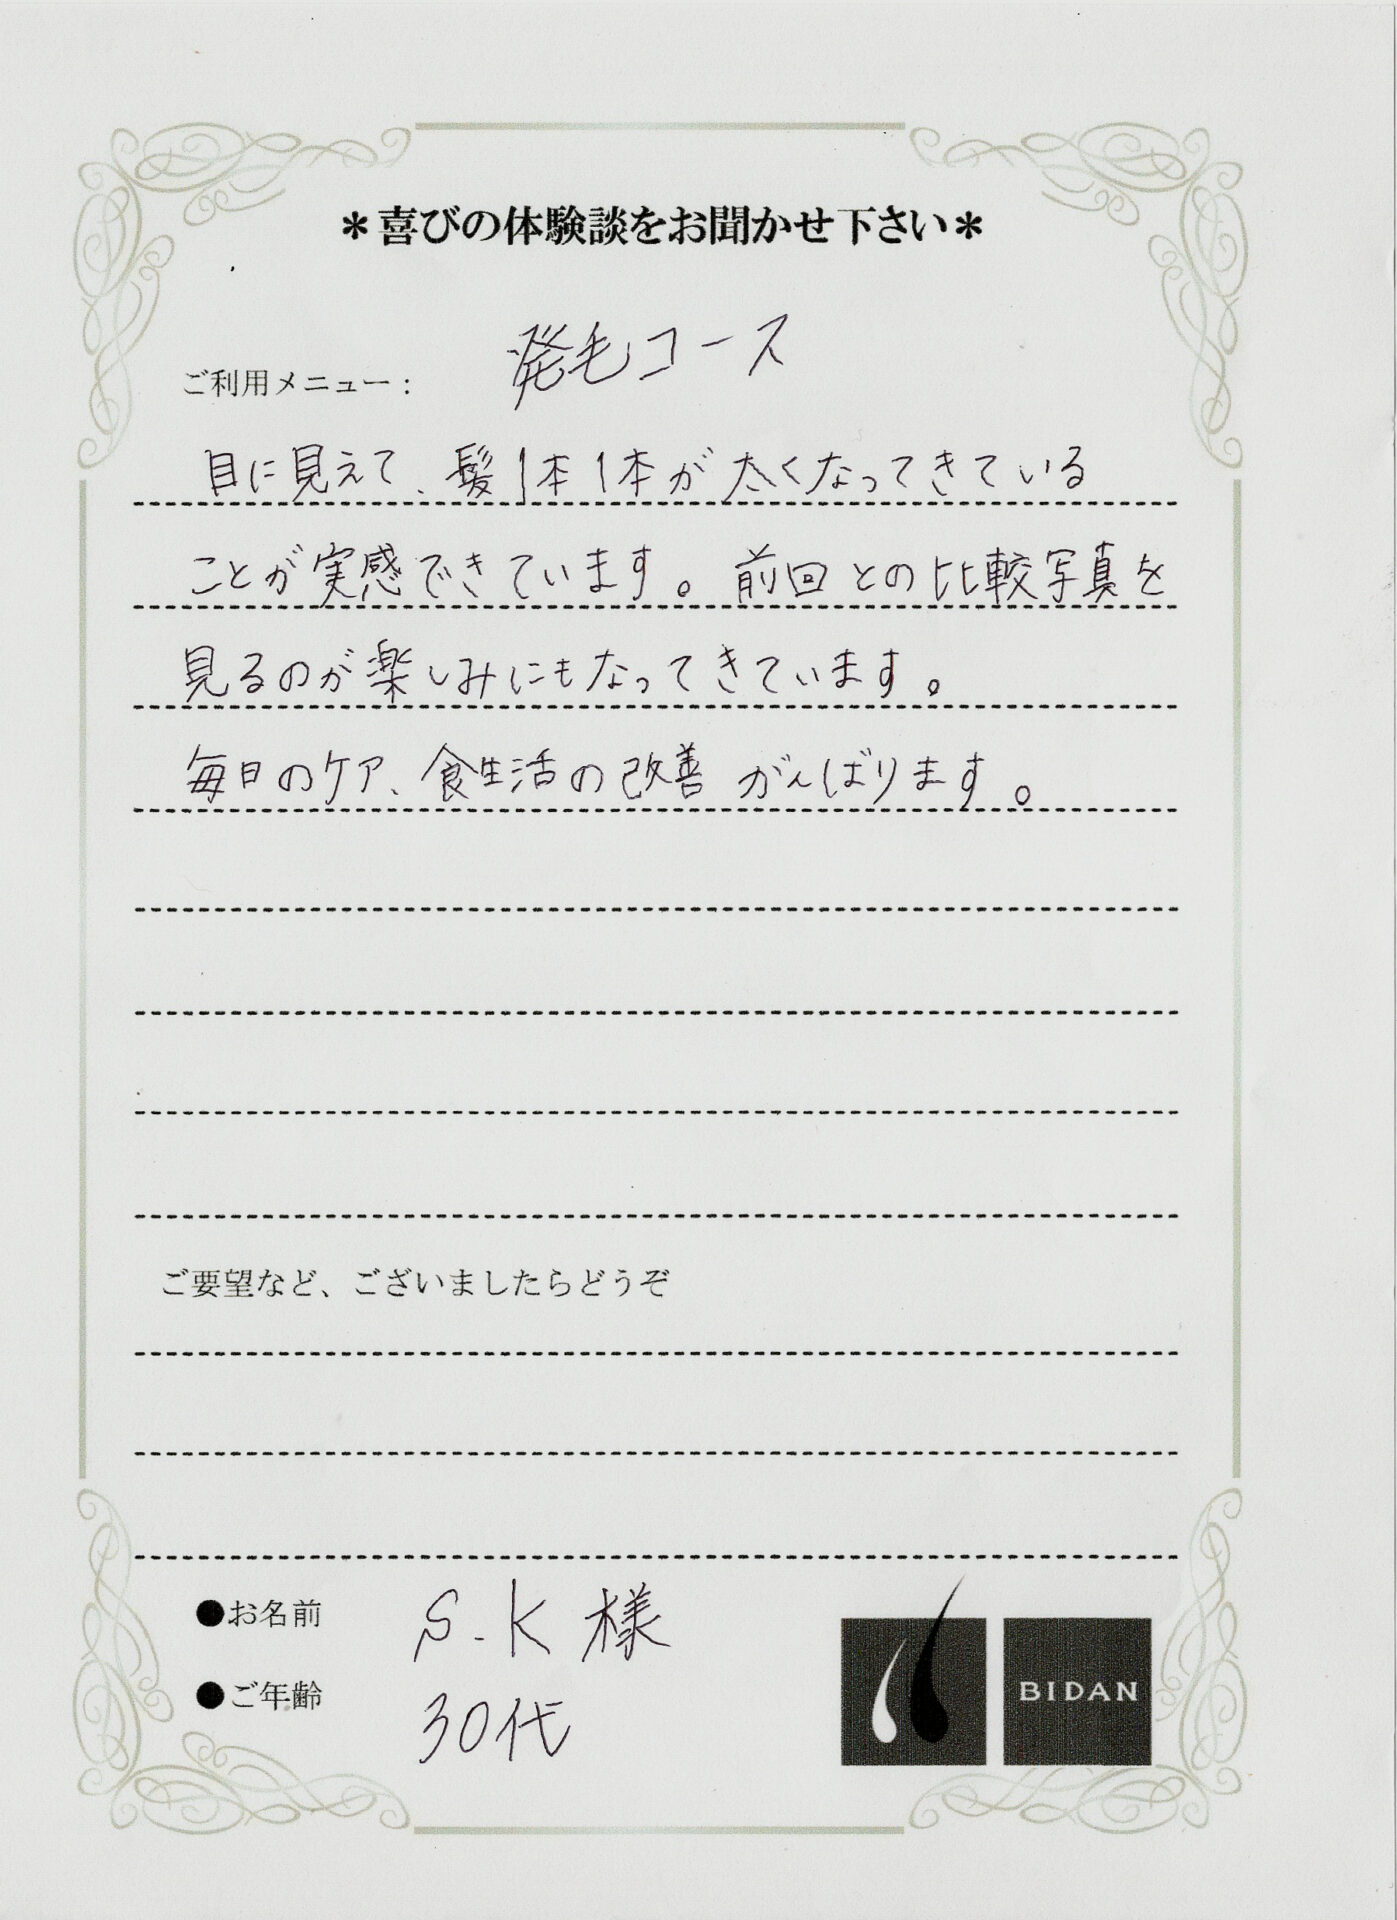 ＊喜びの体験談をお聞かせ下さい＊
ご利用メニュー： 発毛コース
目に見えて、髪1本1本が太くなってきている
ことが実感できています。前回との比較写真を
見るのが楽しみにもなってきています。
毎日のケア、食生活の改善がんばります。
ご要望など、ございましたらどうぞ
●お名前 S.K様
●ご年齢 30代
BIDAN